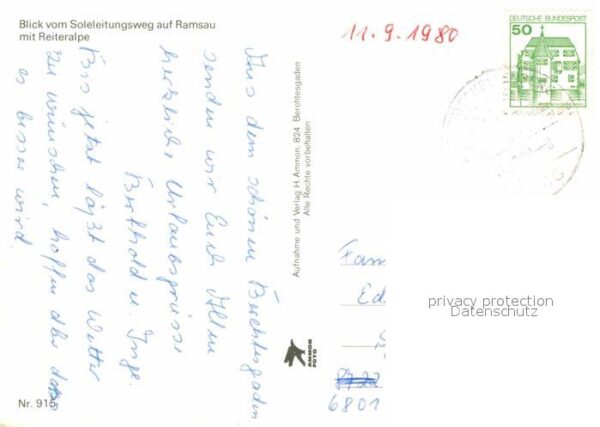 Blick vom Soleleitungsweg auf Ramsau
mit Reiteralpe
11.9.1980
DEUTSCHE BUNDESPOST
50
Aus dem schönen Berchtesgaden
senden wir Euch Allen
herzliche Urlaubsgrüsse
Berthold u. Inge.
Bis jetzt läßt das Wetter
zu wünschen, hoffen aber dass
es besser wird.
Aufnahme und Verlag H. Ammon, 824 Berchtesgaden
Alle Rechte vorbehalten
AMMON
FOTO
Fam
Ed
privacy protection
Datenschutz
6801
Nr. 915